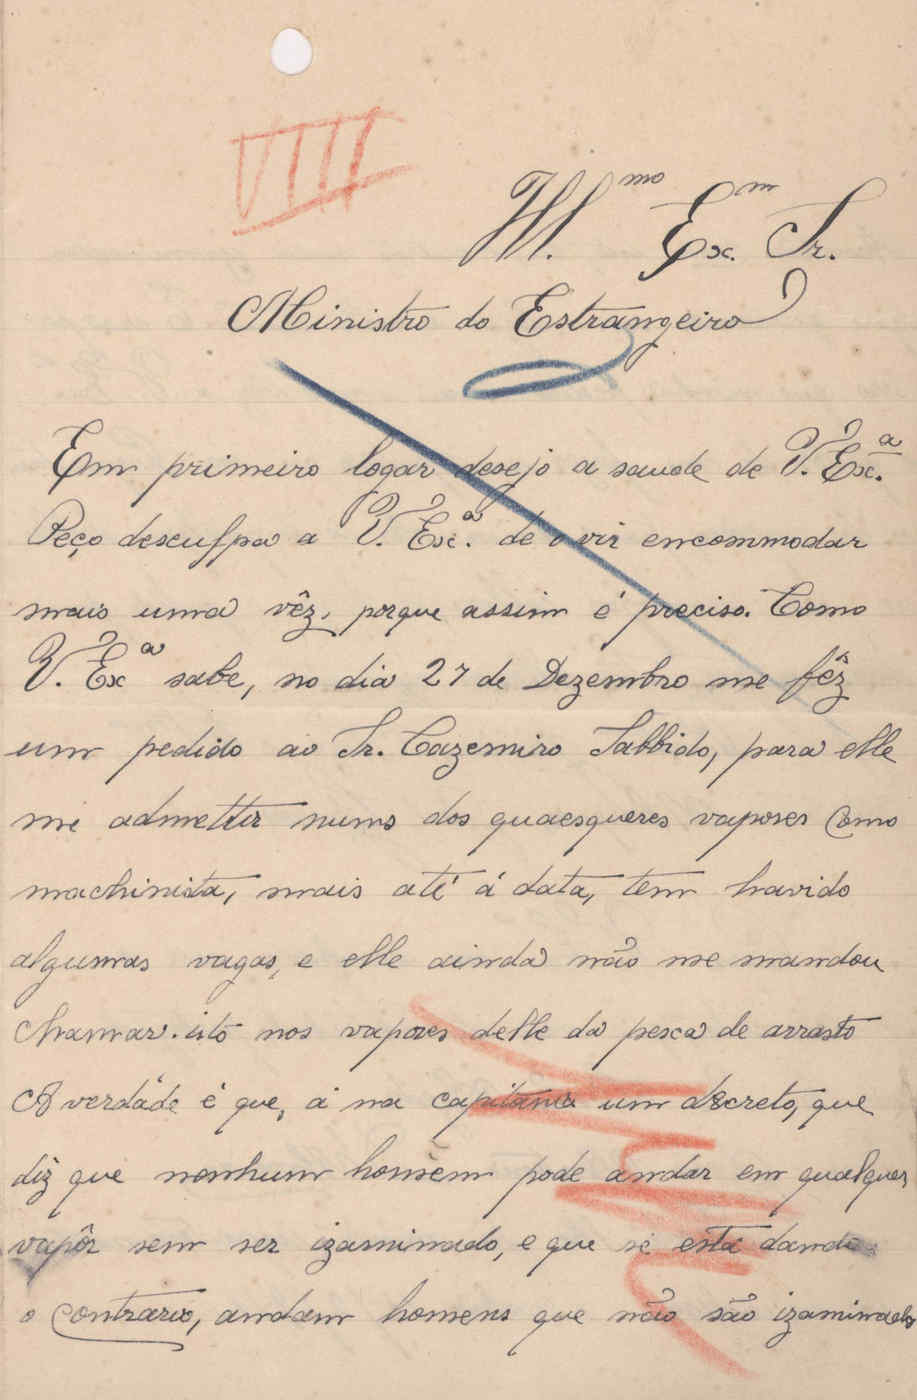 VIII
Ill.mo Ex.m Sr.
Ministro do Estrangeiro
Em primeiro logar desejo a saude de V. Exc.a
Peço desculpa a V. Exc.a de o vir encommodar
mais uma vêz, porque assim é preciso. Como
V. Exa sabe, no dia 27 de Dezembro me fêz
um pedido ao Sr. Cazemiro Sabbido, para elle
me admettir nums dos quaesqueres vapores como
machinista, mais até á data, tem havido
algumas vagas, e elle ainda não me mandou
chamar. isto nos vapores delle da pesca de arrasto
A verdade é que, á na capitania um decreto, que
diz que nenhum homem pode andar em qualquer
vapôr sem ser izaminado, e que se está dando
o contrario, andam homens que não são izaminados